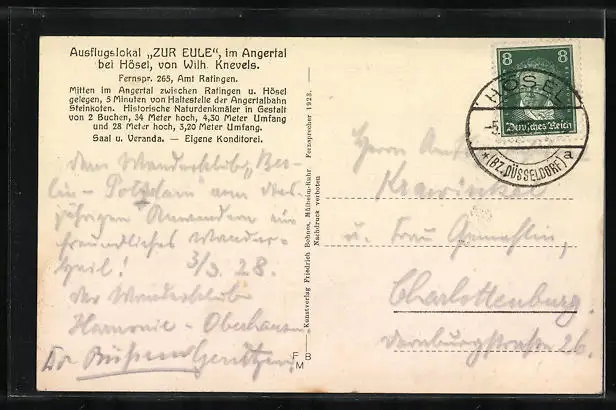 Ausflugslokal „ZUR EULE", im Angertal
bei Hösel, von Wilh. Knevels.
Fernspr. 265, Amt Ratingen.
Mitten im Angertal zwischen Ratingen u. Hösel
gelegen, 5 Minuten von Haltestelle der Angertalbahn
Steinkoten. Historische Naturdenkmäler in Gestalt
von 2 Buchen, 34 Meter hoch, 4,30 Meter Umfang
und 28 Meter hoch, 3,20 Meter Umfang.
Saal u. Veranda. — Eigene Konditorei.
Dem Wanderklub „Ber-
lin - Potsdam" am dies-
jährigen Anwandern ein
freundliches Wander-
heil! 3/3. 28.
Der Wanderklub
Harmonie - Oberhausen
Kunstverlag Friedrich Bohnes, Mülheim-Ruhr. Fernsprecher 1923.
Nachdruck verboten
F B
M
8 8
Deutsches Reich
HÖSEL
-5.
*(BZ. DÜSSELDORF) a
Herrn
u. Frau Gemahlin,
Charlottenburg.
Dernburgstraße 26.